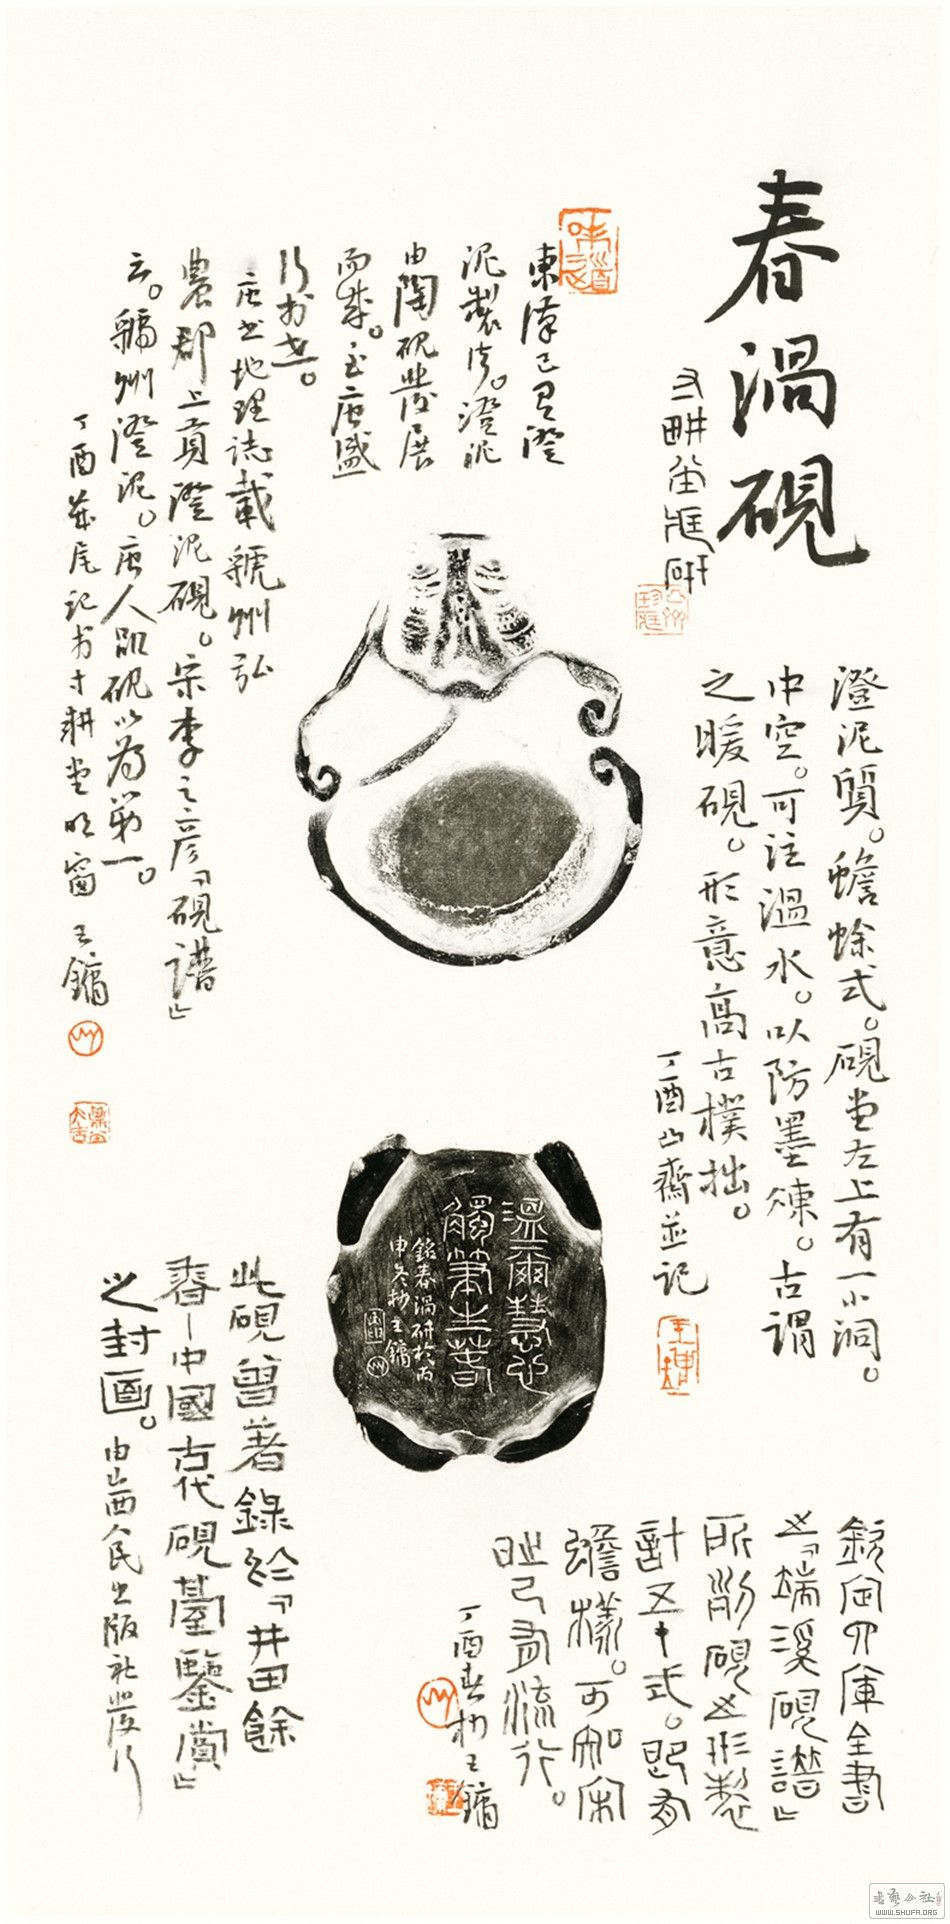 春渦硯
澄泥質。蟾蜍式。硯堂左上有一小洞。
中空。可注溫水。以防墨凍。古謂
之暖硯。形意高古樸拙。
丁酉山齋並記
東漢已有澄
泥製法。澄泥
由陶硯發展
而成。至唐盛
行於世。
唐書地理誌載虢州弘
農郡上貢澄泥硯。宋李之彥「硯譜」
云。虢州澄泥。唐人品硯以為第一。
丁酉歲尾記於寸耕堂明窗王鏞
溫爾慧心
觸筆生春
銘春渦硏於丙
申冬初王鏞
欽定四庫全書
之「端溪硯譜」
所列硯之形製
計五十式。即有
蟾樣。可知宋
時已有流行。
丁酉春初王鏞
此硯曾著錄於「井田餘
春-中國古代硯臺鑒賞」
之封面。由山西人民出版社發行
書藝公社
WWW.SHUFA.ORG